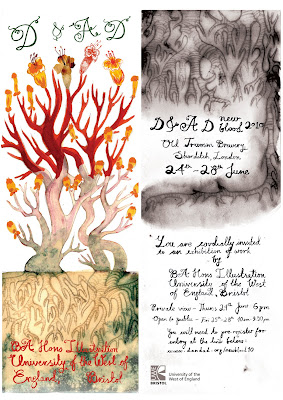 D & AD
BA Hons Illustration
University of the West of
England, Bristol
D & AD new
blood 2010
Old Truman Brewery
Shoreditch, London
24th - 28th June
You are cordially invited
to an exhibition of work
by
BA Hons Illustration
University of the West
of England, Bristol
Private view - Thurs 24th June 6pm
Open to public - Fri 25th - 28th
You will need to pre register for
entry at the link below:
BRISTOL
University of the
West of England